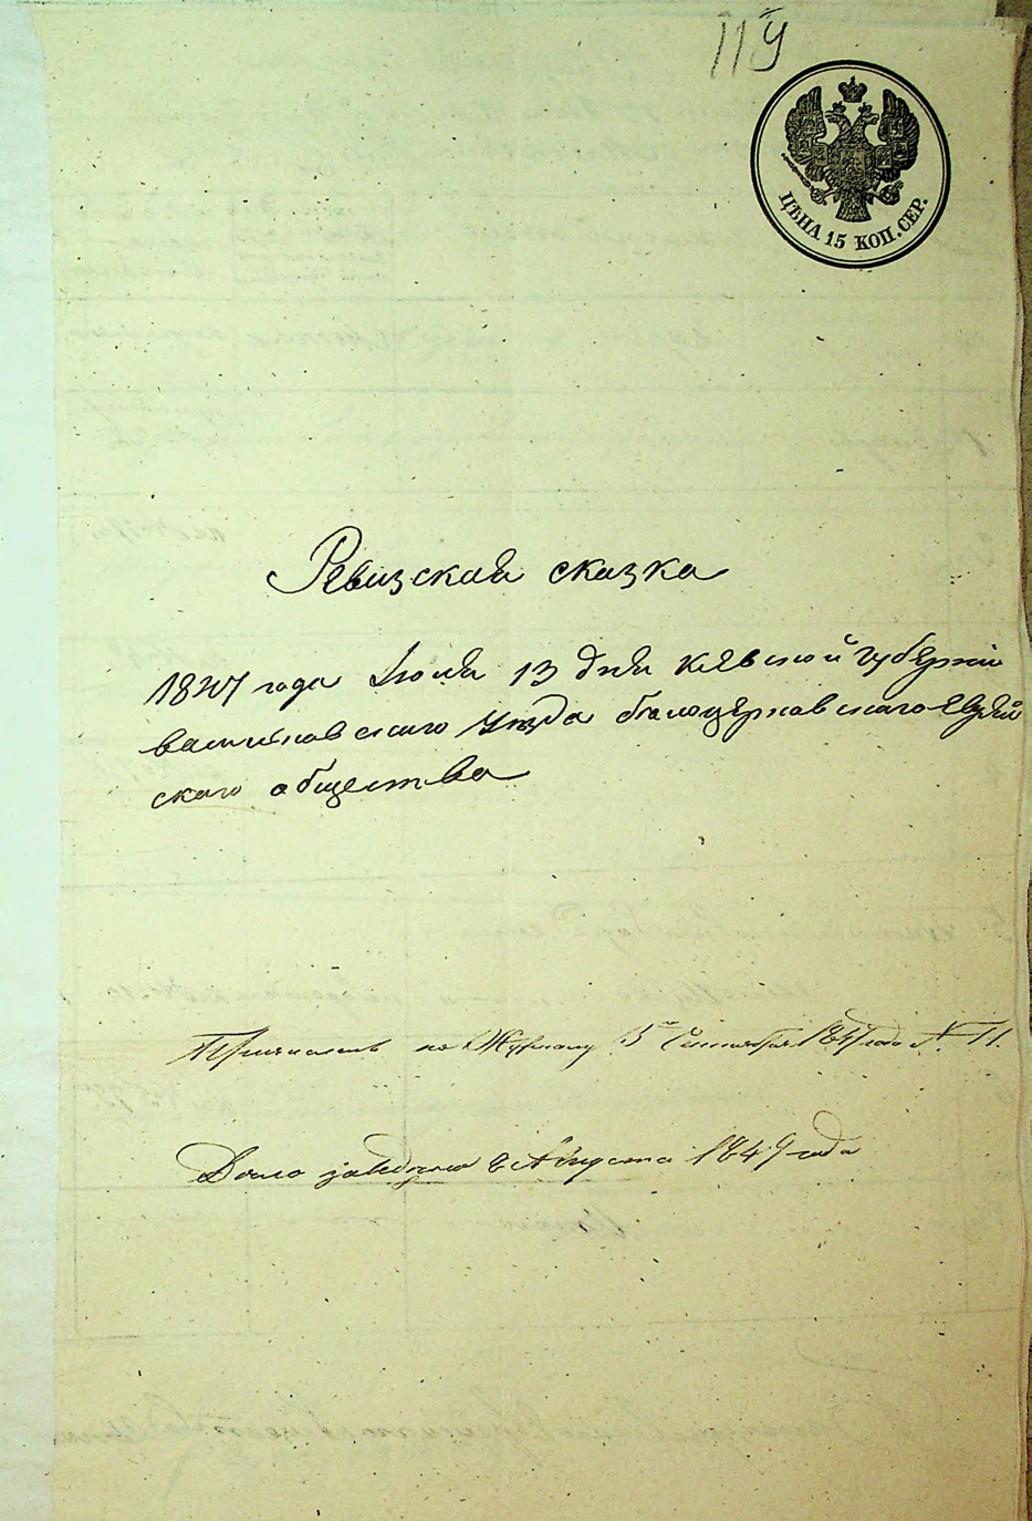 119
ЦѢНА 15 КОП. СЕР.
Ревизская сказка
1847 года Июля 13 дня Киевской Губернии
васильковского Уезда белоцерковского Еврей
ского общества
по Журналу 5 Сентября 1847 года № 11.
Дело заведено 8 Августа 1847 года